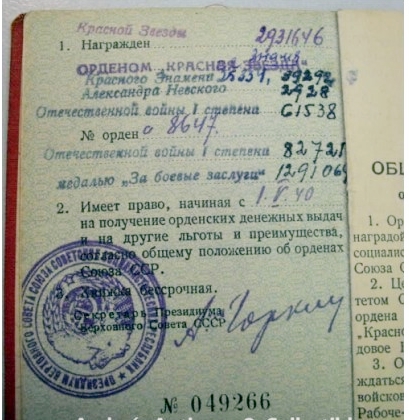 Красной Звезды 2931646
1. Награжден
ОРДЕНОМ „КРАСНАЯ ЗВЕЗДА"
Красного Знамени 25551, 39292
Александра Невского 2928
Отечественной войны I степени 61538
№ ордена 8647.
Отечественной войны I степени 82721
медалью „За боевые заслуги" 1291069
2. Имеет право, начиная с 1.V.40
на получение орденских денежных выдач
и на другие льготы и преимущества,
согласно общему положению об орденах
Союза ССР.
3. Книжка бессрочная.
Секретарь Президиума
Верховного Совета СССР
А. Горкин
№ 049266
ПРЕЗИДИУМ ВЕРХОВНОГО СОВЕТА СОЮЗА СОВЕТСКИХ
ОБЩ
1. Ор
наградой
социалис
Союза С
2. Це
тетом С
ордена
„Красно
довое К
3. О
ждаться
войсков
Рабоче-